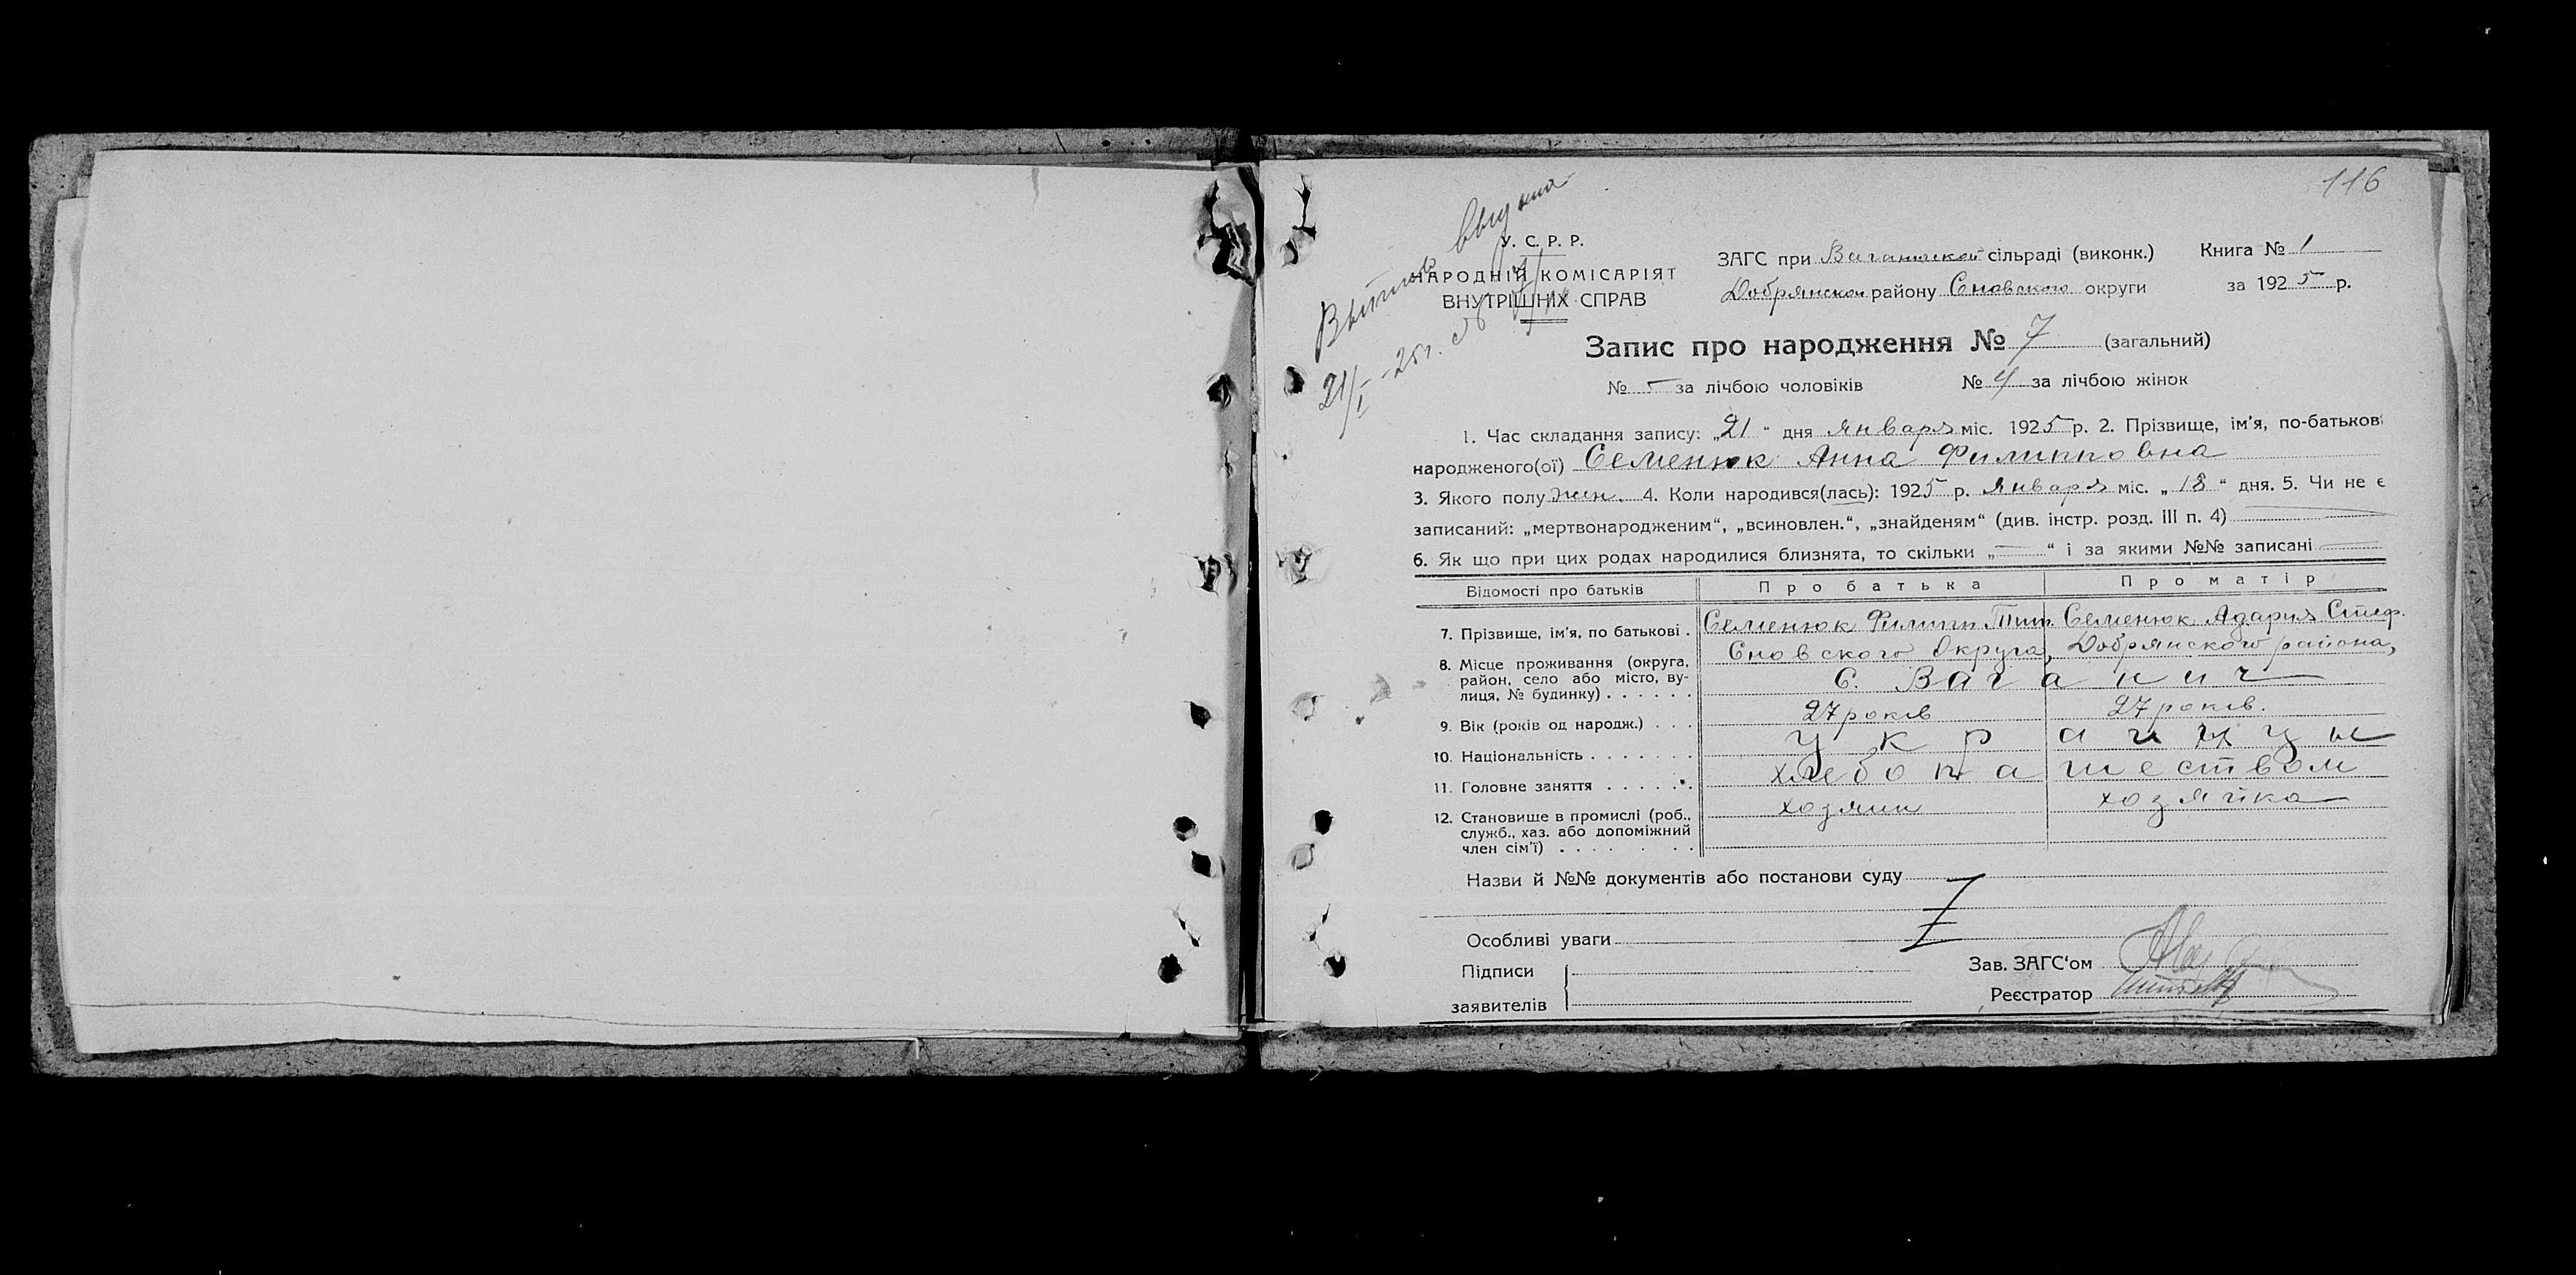 116
Выпись выдана
21/I -25г.
У. С. Р. Р.
НАРОДНІЙ КОМІСАРІЯТ
ВНУТРІШНІХ СПРАВ
ЗАГС при Ваганичской сільраді (виконк.) Книга № 1
Добрянском району Сновского округи за 1925 р.
Запис про народження № 7 (загальний)
№ - за лічбою чоловіків № 4 за лічбою жінок
1. Час складання запису: „21“ дня января міс. 1925 р. 2. Прізвище, ім'я, по-батькові
народженого(ої) Семенюк Анна Филипповна
3. Якого полу жен. 4. Коли народився(лась): 1925 р. января міс. „18“ дня. 5. Чи не є
записаний: „мертвонародженим“, „всиновлен.“, „знайденям“ (див. інстр. розд. III п. 4)
6. Як що при цих родах народилися близнята, то скільки „—“ і за якими №№ записані —
Відомості про батьків Про батька Про матір
7. Прізвище, ім'я, по батькові . Семенюк Филипп Тит. Семенюк Адария Стеф.
8. Місце проживання (округа, Сновского Округа, Добрянского района,
район, село або місто, ву-
лиця, № будинку) . . . . . . с. Ваганич
9. Вік (років од народж.) . . . 27 років 27 років.
10. Національність . . . . . . . украинцы
11. Головне заняття . . . . . . хлебопашеством
12. Становище в промислі (роб., хозяин хозяйка
служб., хаз. або допоміжний
член сім'ї) . . . . . . .
Назви й №№ документів або постанови суду
Особливі уваги
Підписи
заявителів
Зав. ЗАГС'ом
Реєстратор